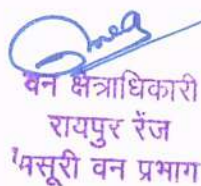 वन क्षेत्राधिकारी
रायपुर रेंज
मसूरी वन प्रभाग